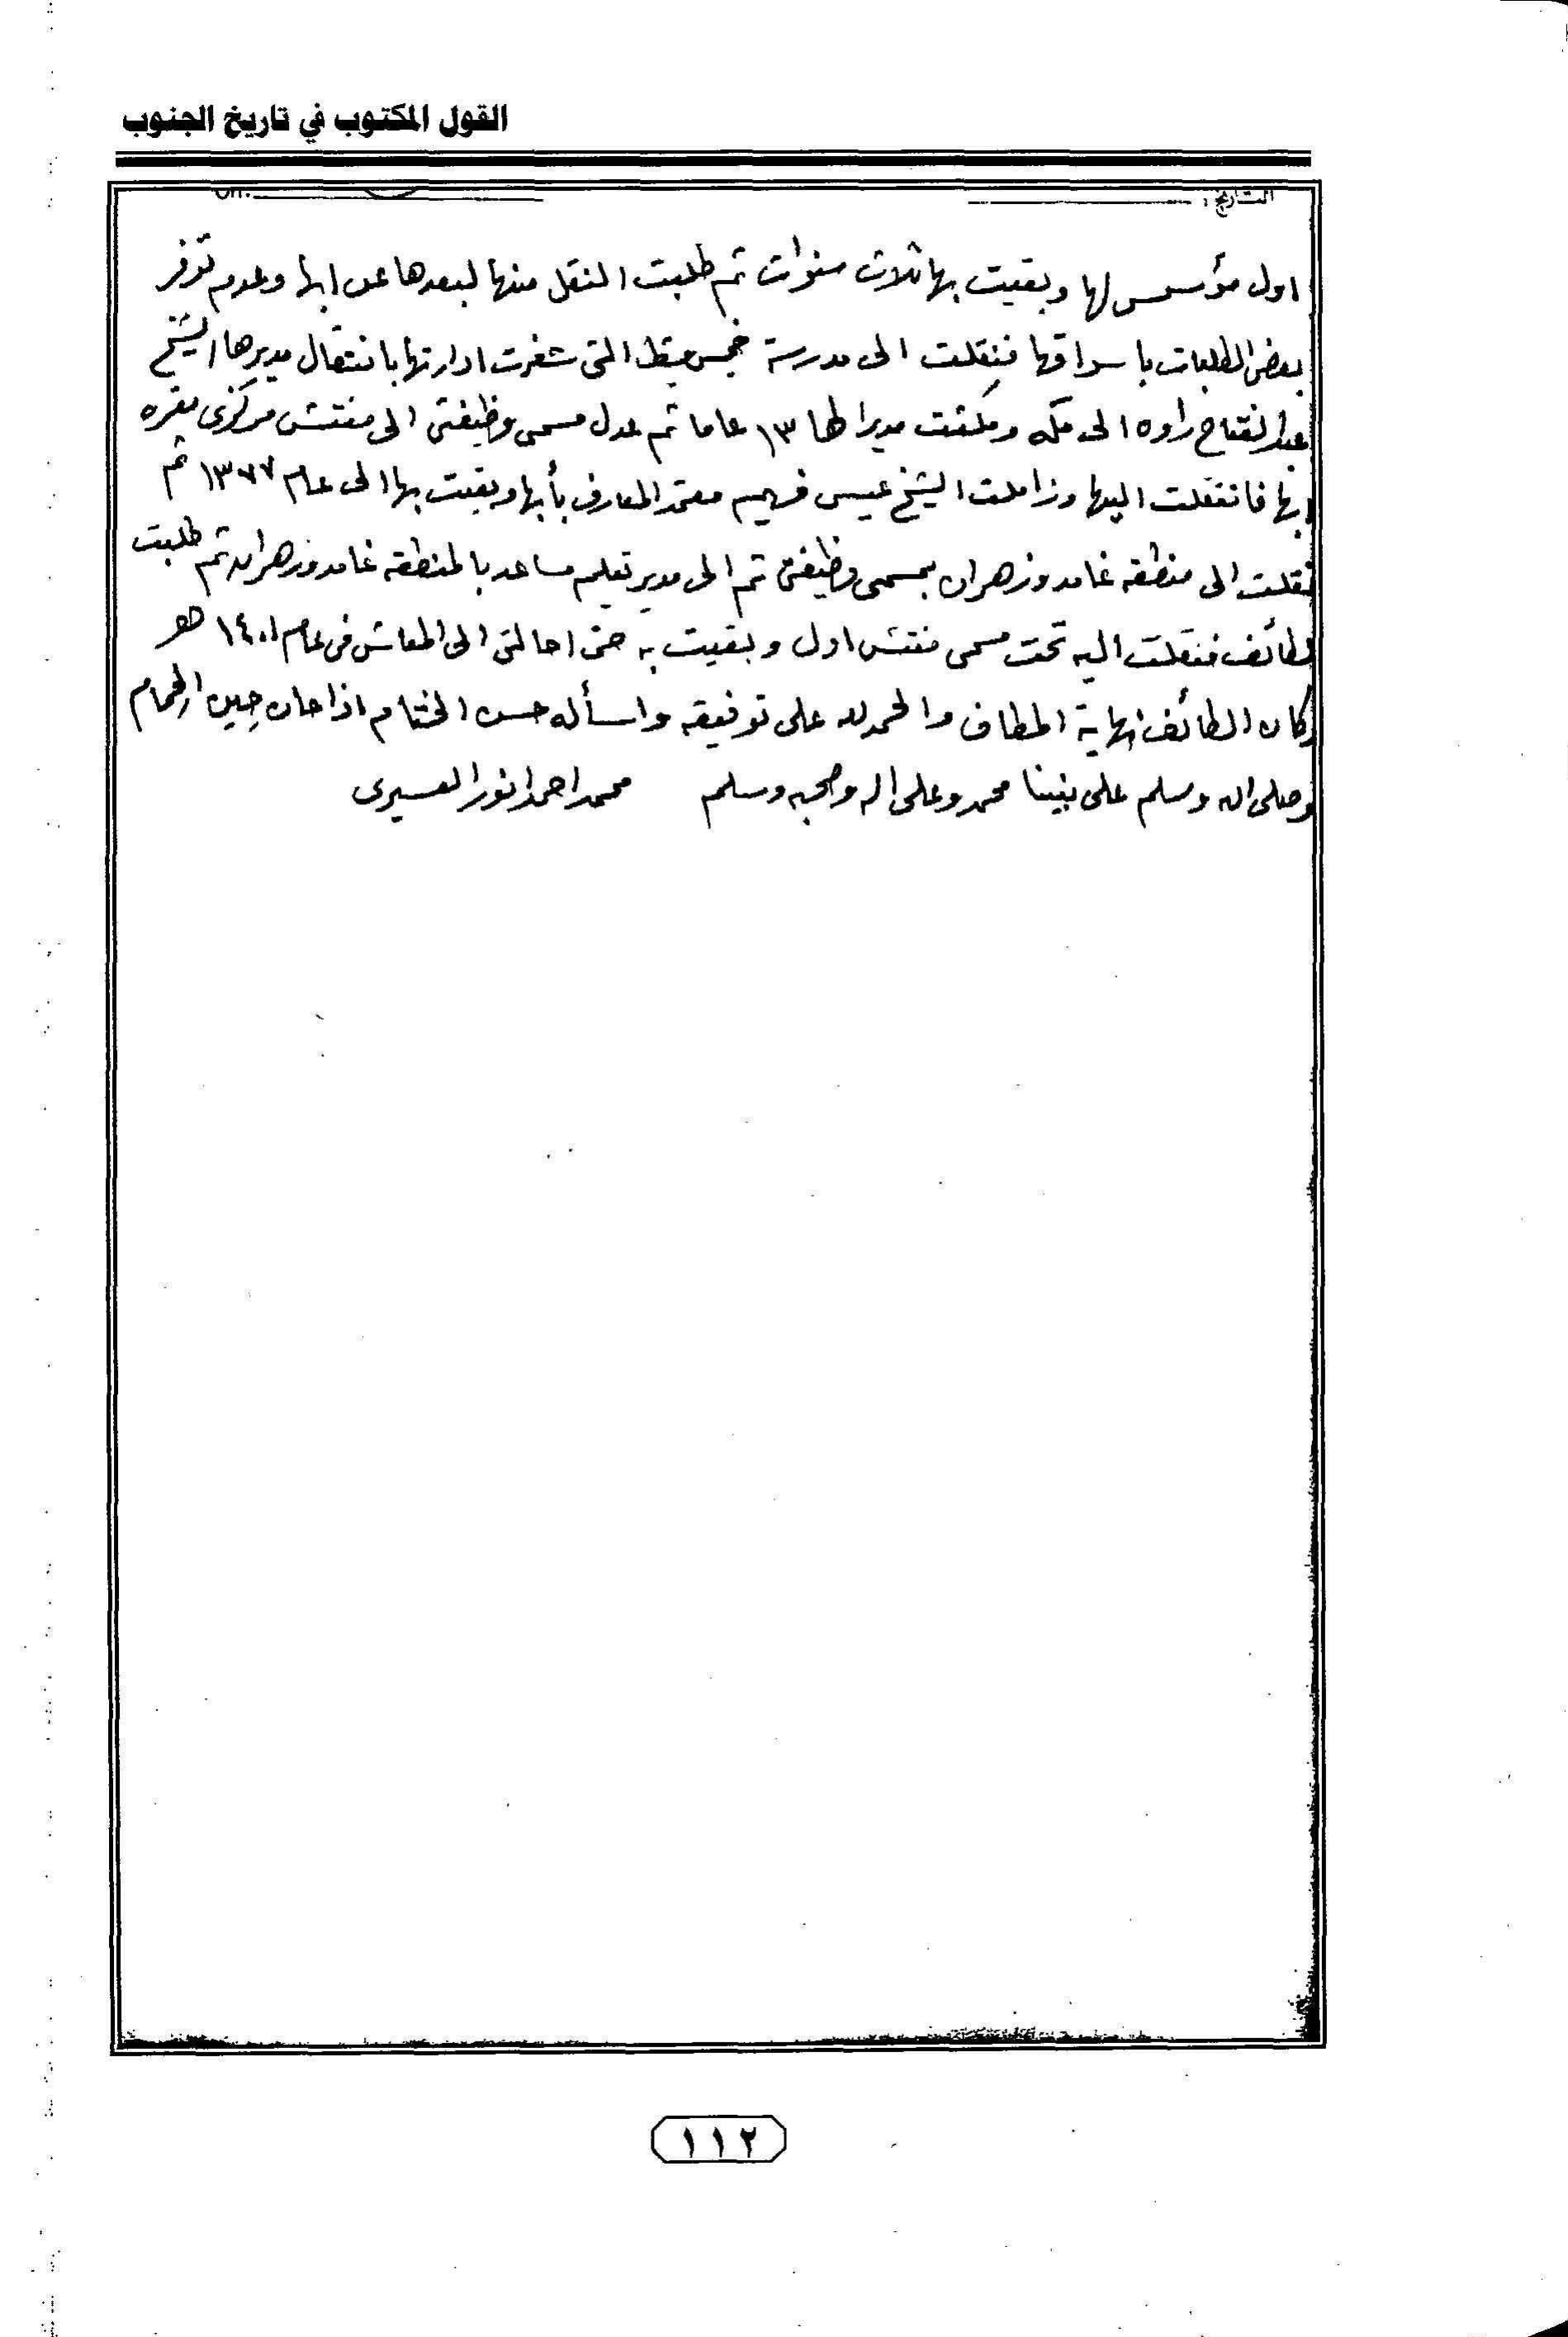 القول المكتوب في تاريخ الجنوب
التاريخ :
اول مؤسس لها وبقيت بها ثلاث سنوات ثم طلبت النقل منها لبعدها عن ابها وعدم توفر
بعض الطلبات باسواقها فنقلت الى مدرسة خميس مشيط التى شغرت ادارتها بانتقال مديرها الشيخ
عبدالفتاح راوه الى مكه ومكثت مديرا لها ١٣ عاما ثم عدل مسمى وظيفتى الى مفتش مركزى مقره
ابها فانتقلت اليها وزاملت الشيخ عيسى فهيم معتمد المعارف بأبها وبقيت بها الى عام ١٣٧٧ ثم
نقلت الى منطقه غامد وزهران بمسمى وظيفتى ثم الى مدير تعليم مساعد بالمنطقه غامد وزهران ثم طلبت
الطائف فنقلت اليه تحت مسمى مفتش اول وبقيت به حتى احالتى الى المعاش فى عام ١٤٠١ هـ
وكان الطائف نهاية المطاف والحمدلله على توفيقه واسأله حسن الختام اذا حان حِين الحِمام
وصلى الله وسلم على نبينا محمد وعلى اله وصحبه وسلم محمد احمد انور العسيرى
١١٢